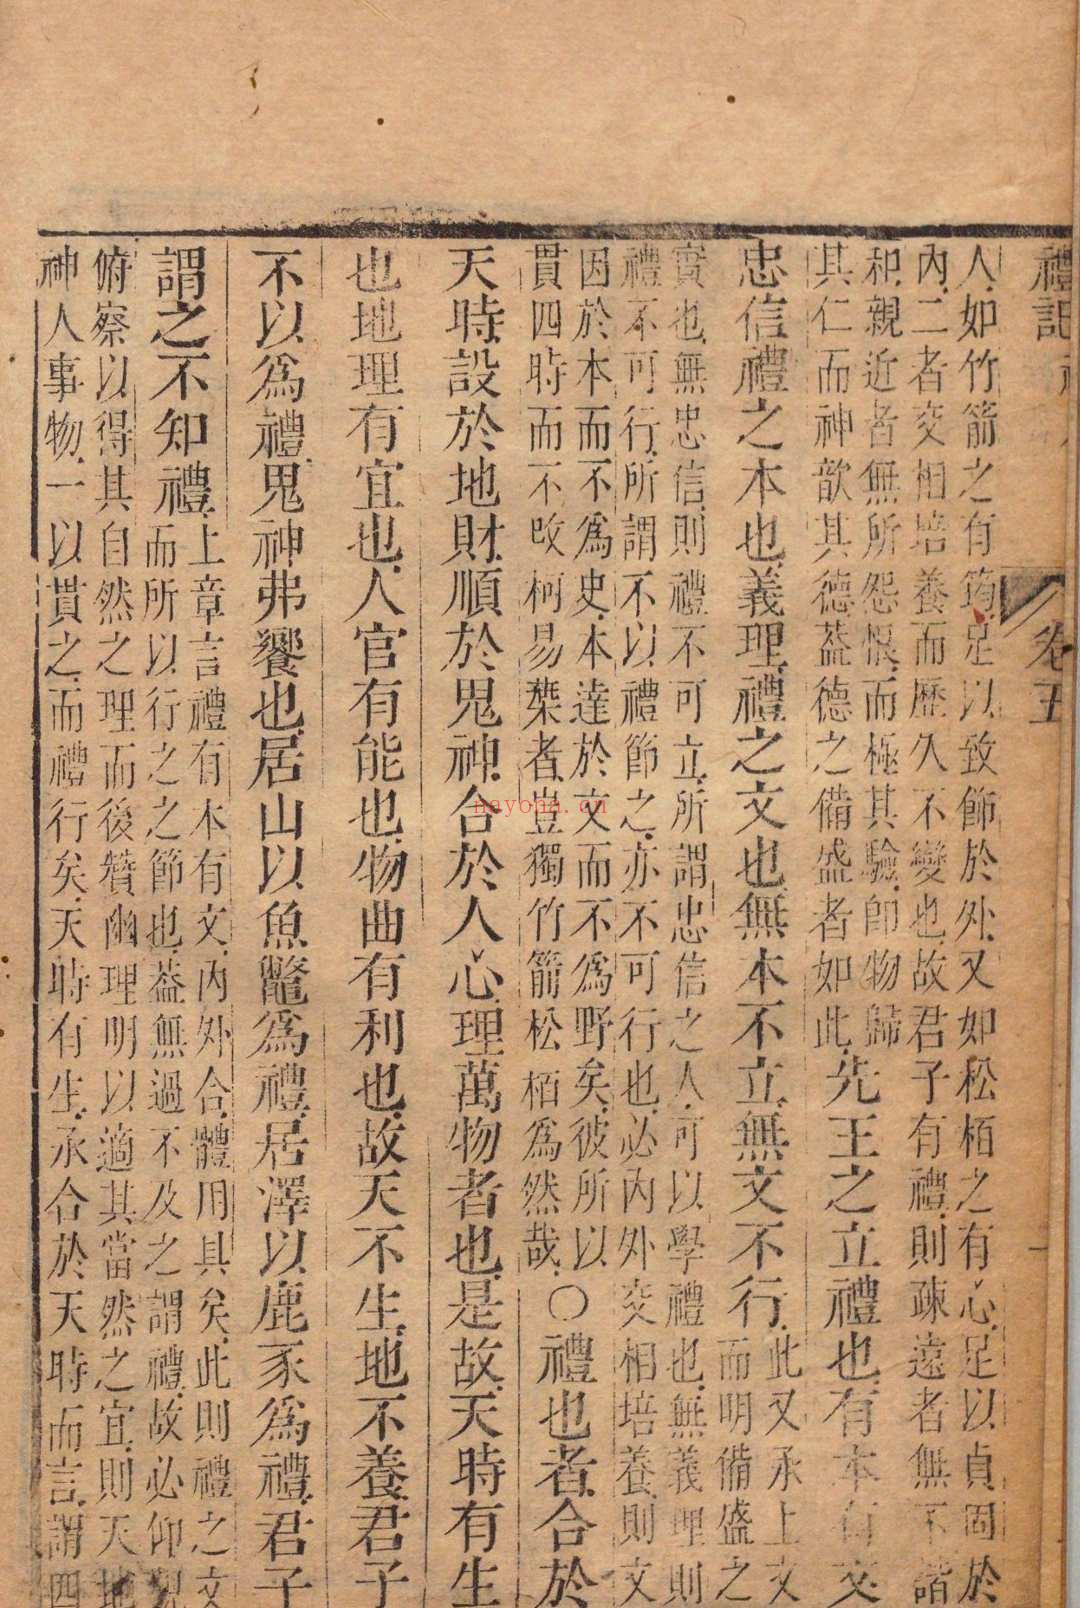 禮記
卷五
人如竹箭之有筠足以致飾於外又如松栢之有心足以貞固於
內二者交相培養而歷久不變也故君子有禮則疎遠者無不諧
和親近者無所怨恨而極其驗即物歸
其仁而神歆其德葢德之備盛者如此先王之立禮也有本有文
忠信禮之本也義理禮之文也無本不立無文不行此又承上文
而明備盛之
實也無忠信則禮不可立所謂忠信之人可以學禮也無義理則
禮不可行所謂不以禮節之亦不可行也必內外交相培養則文
因於本而不為史本達於文而不為野矣彼所以
貫四時而不改柯易葉者豈獨竹箭松栢為然哉〇禮也者合於
天時設於地財順於鬼神合於人心理萬物者也是故天時有生
也地理有宜也人官有能也物曲有利也故天不生地不養君子
不以為禮鬼神弗饗也居山以魚鼈為禮居澤以鹿豕為禮君子
謂之不知禮上章言禮有本有文內外合體用具矣此則禮之文
而所以行之之節也葢無過不及之謂禮故必仰觀
俯察以得其自然之理而後贊幽理明以適其當然之宜則天地
神人事物一以貫之而禮行矣天時有生承合於天時而言謂四
nayona.cn